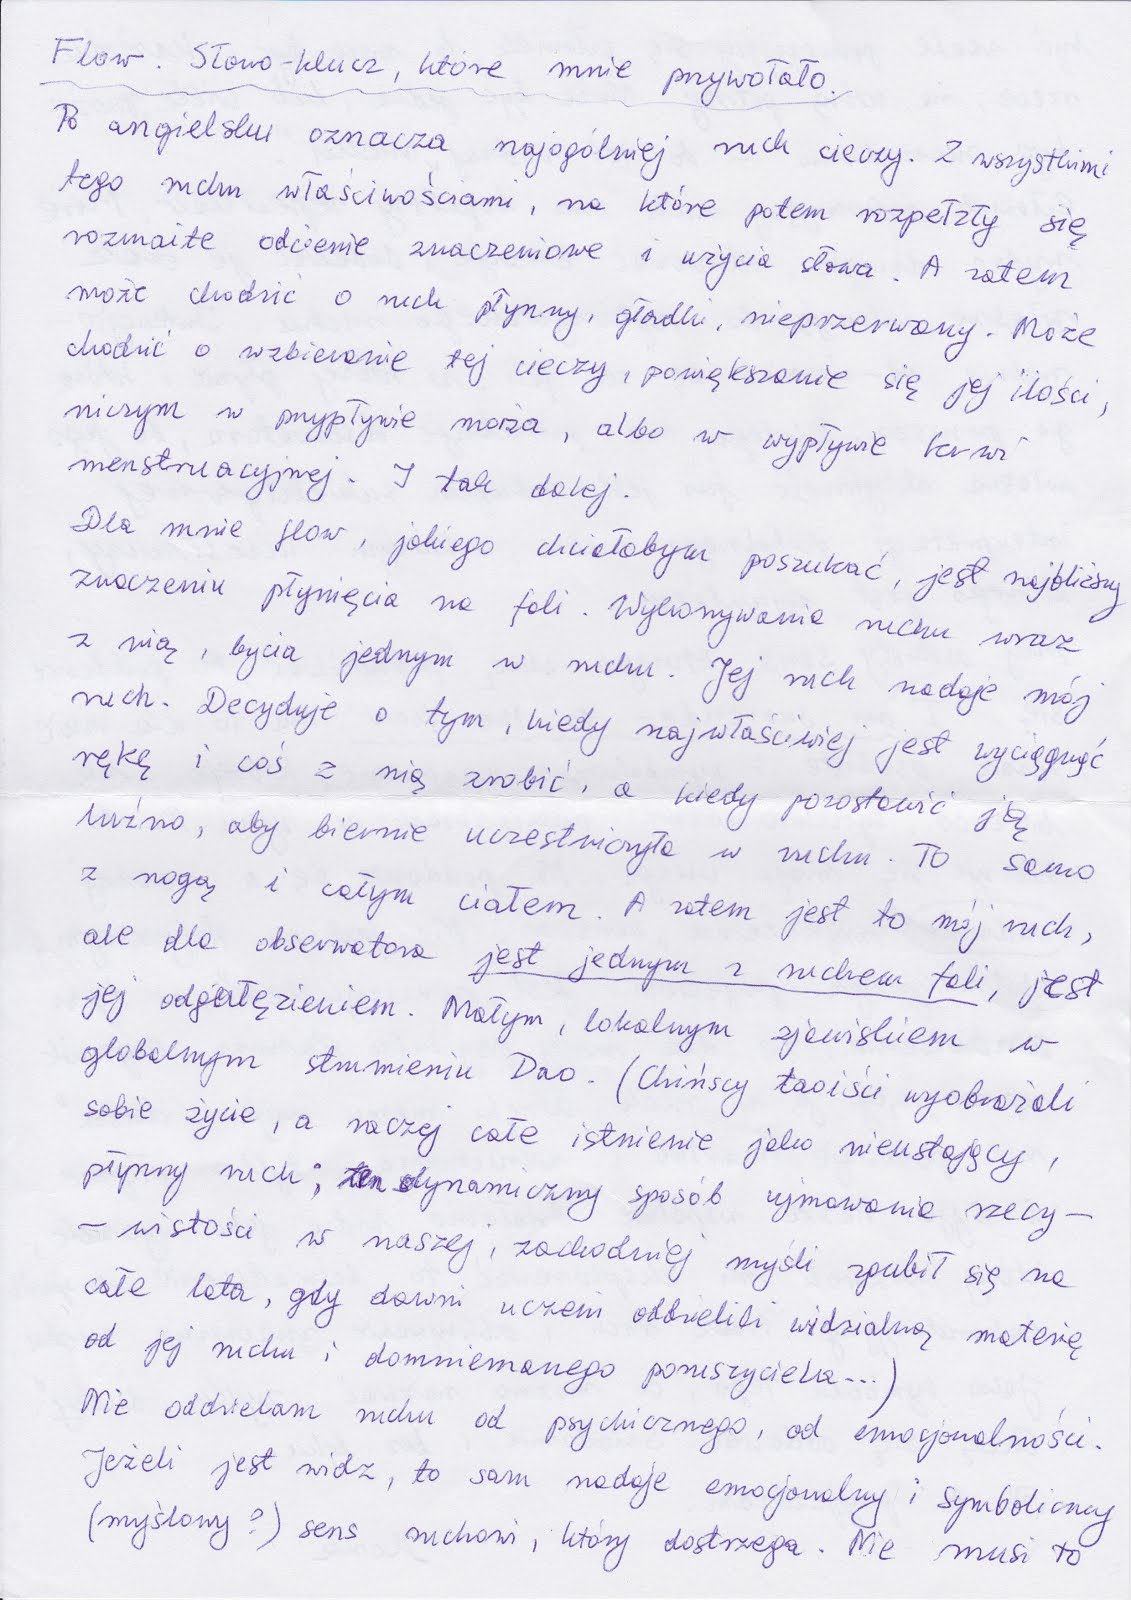 Flow. Słowo-klucz, które mnie przywołało.
Po angielsku oznacza najogólniej ruch cieczy. Z wszystkimi
tego ruchu właściwościami, na które potem rozpełzły się
rozmaite odcienie znaczeniowe i użycia słowa. A zatem
może chodzić o ruch płynny, gładki, nieprzerwany. Może
chodzić o wzbieranie tej cieczy, powiększanie się jej ilości,
niczym w przypływie morza, albo w wypływie krwi
menstruacyjnej. I tak dalej.
Dla mnie flow, jakiego chciałabym poszukać, jest najbliższy
znaczeniu płynięcia na fali. Wykonywania ruchu wraz
z nią, bycia jednym w ruchu. Jej ruch nadaje mój
ruch. Decyduje o tym, kiedy najwłaściwiej jest wyciągnąć
rękę i coś z nią zrobić, a kiedy pozostawić ją
luźno, aby biernie uczestniczyła w ruchu. To samo
z nogą i całym ciałem. A zatem jest to mój ruch,
ale dla obserwatora jest jednym z ruchem fali, jest
jej odgałęzieniem. Małym, lokalnym zjawiskiem w
globalnym strumieniu Dao. (Chińscy taoiści wyobrażali
sobie życie, a raczej całe istnienie jako nieustający,
płynny ruch; ten dynamiczny sposób ujmowania rzeczy-
-wistości w naszej, zachodniej myśli zgubił się na
całe lata, gdy dawni uczeni oddzielili widzialną materię
od jej ruchu i domniemanego poruszyciela...)
Nie oddzielam ruchu od psychicznego, od emocjonalności.
Jeżeli jest widz, to sam nadaje emocjonalny i symboliczny
(myślowy?) sens ruchowi, który dostrzega. Nie musi to